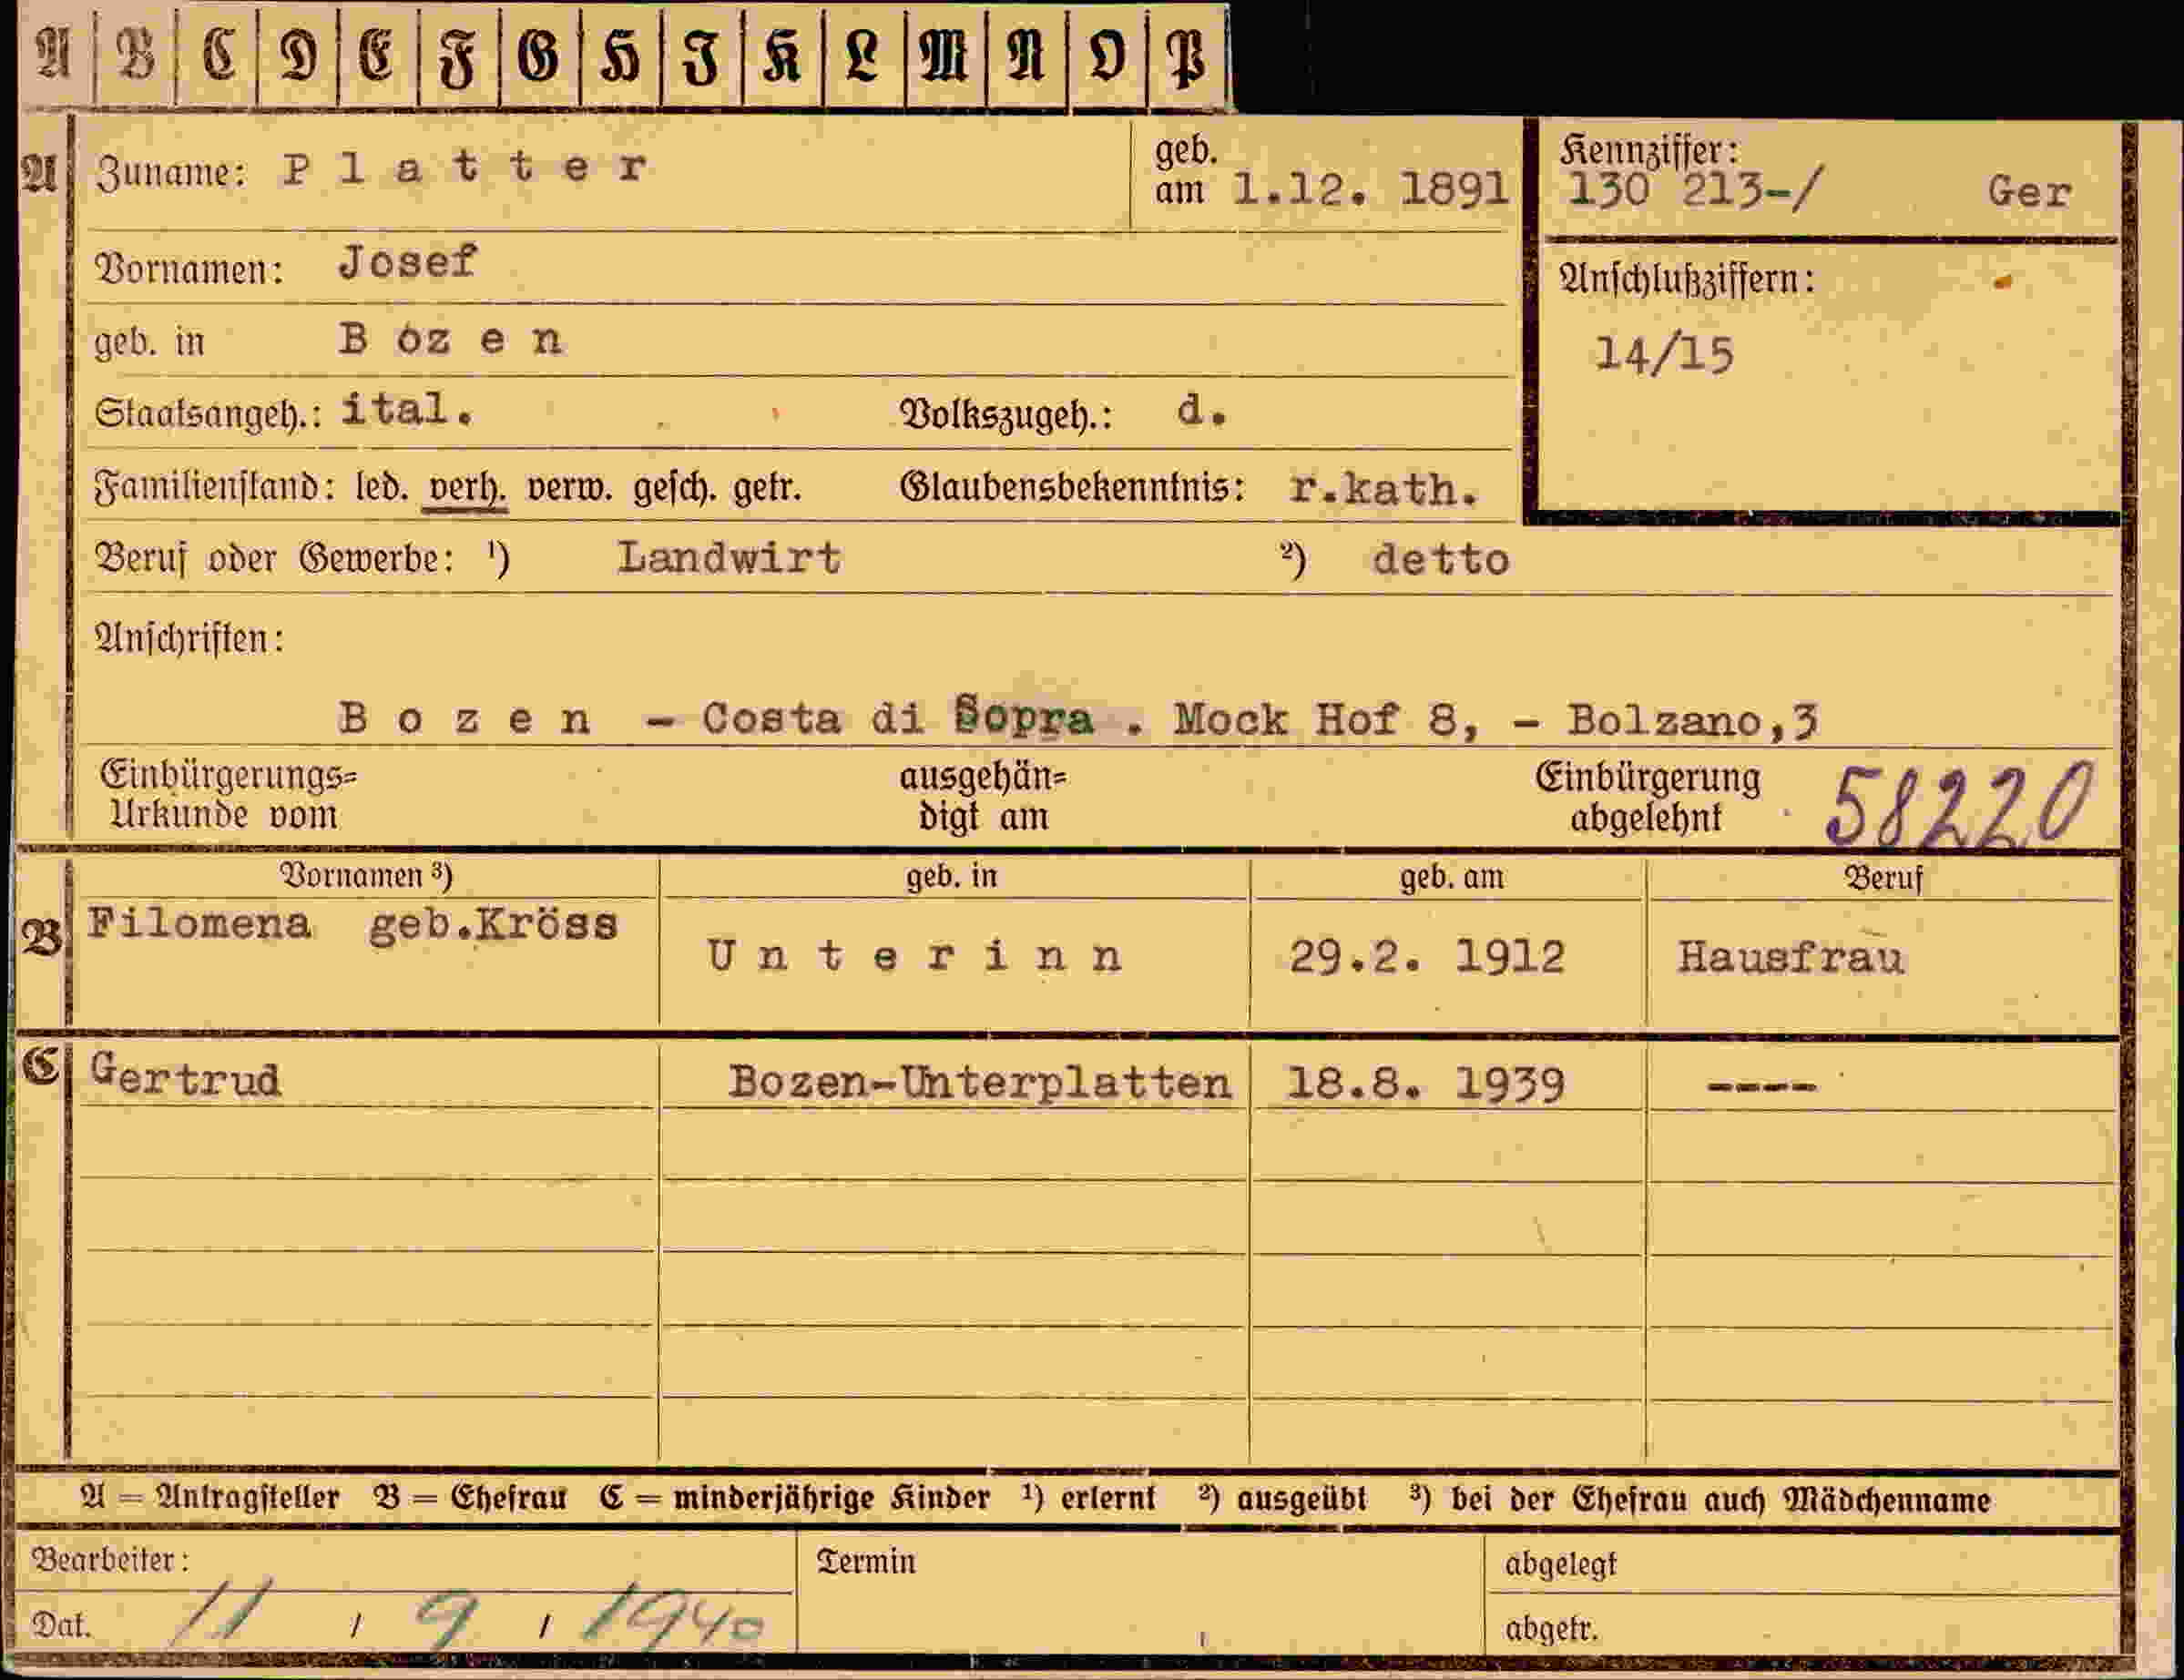 A B C D E F G H I K L M N O P
A Zuname: Platter geb. am 1.12. 1891 Kennziffer: 130 213-/ Ger
Vornamen: Josef Anschlußziffern:
geb. in Bozen 14/15
Staatsangeh.: ital. Volkszugeh.: d.
Familienstand: led. verh. verw. gesch. getr. Glaubensbekenntnis: r.kath.
Beruf oder Gewerbe: ¹) Landwirt ²) detto
Anschriften:
Bozen - Costa di Sopra . Mock Hof 8, - Bolzano,3
Einbürgerungs= ausgehän= Einbürgerung 58220
Urkunde vom digt am abgelehnt
Vornamen ³) geb. in geb. am Beruf
B Filomena geb.Kröss Unterinn 29.2. 1912 Hausfrau
C Gertrud Bozen-Unterplatten 18.8. 1939 ----
A = Antragsteller B = Ehefrau C = minderjährige Kinder ¹) erlernt ²) ausgeübt ³) bei der Ehefrau auch Mädchenname
Bearbeiter: Termin abgelegt
Dat. 11 / 9 / 1940 abgetr.